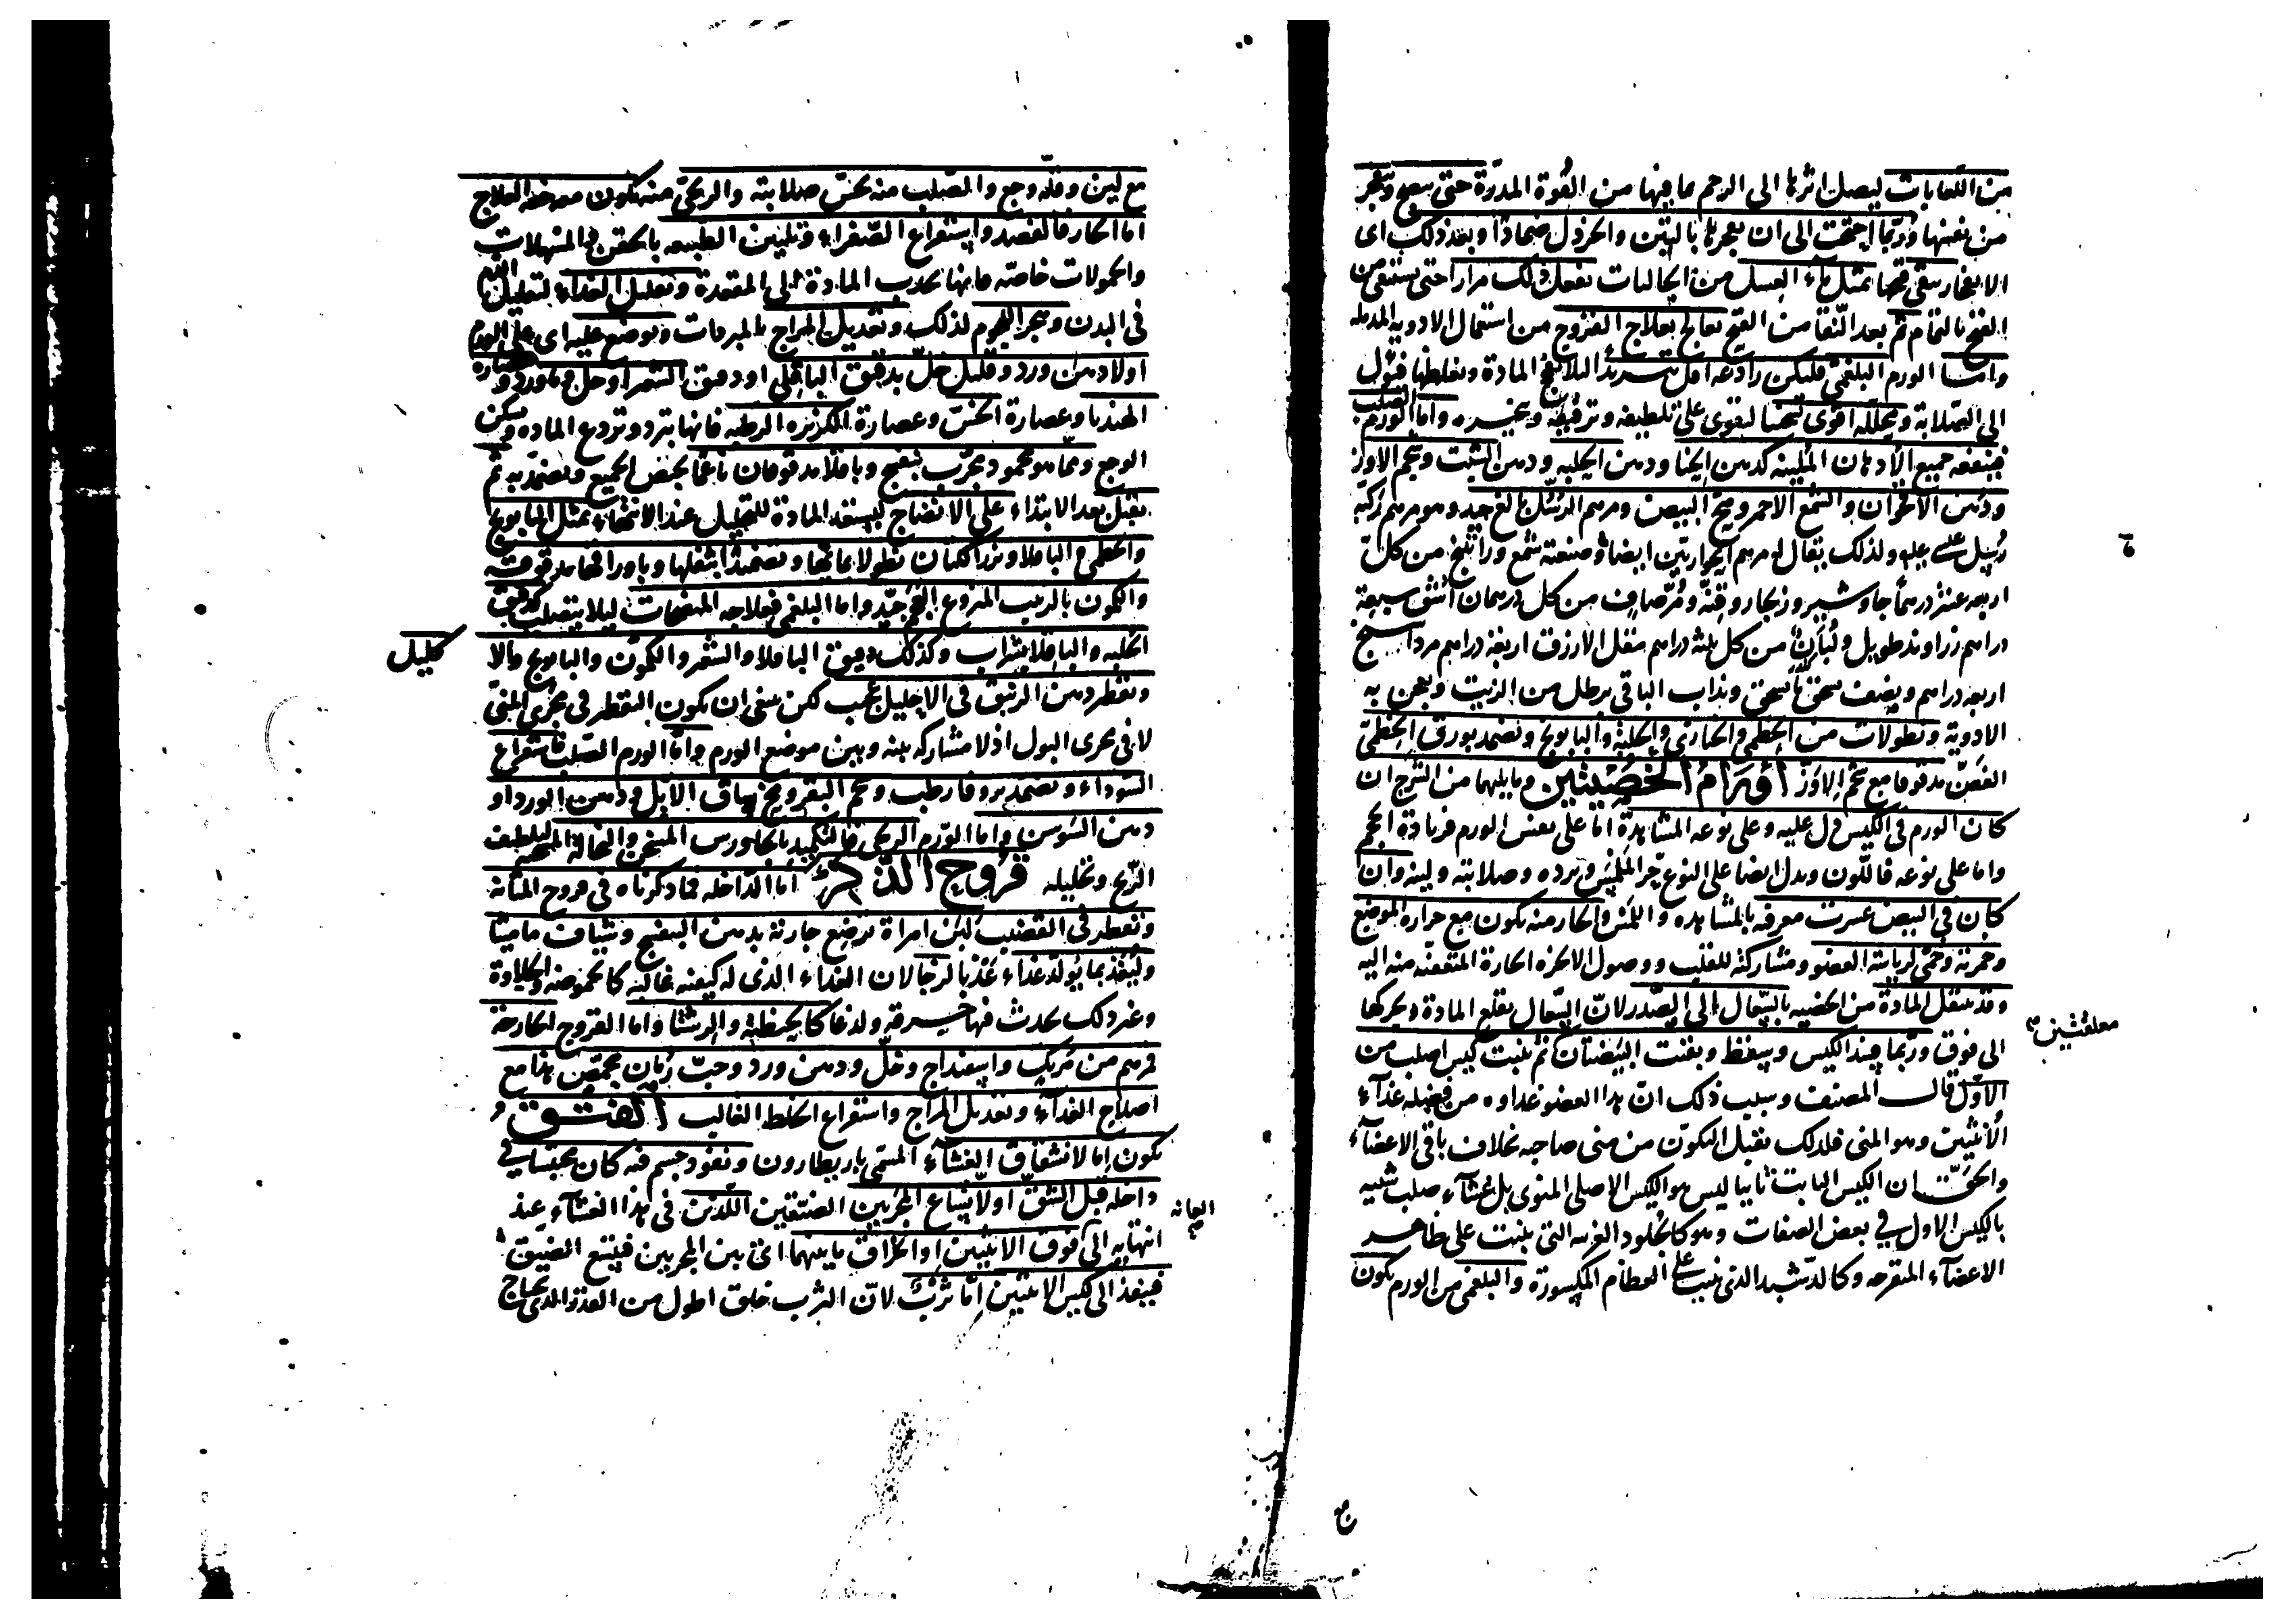 من اللعابات ليصل اثرها الى الرحم مما فيها من القوة المدرة حتى ينضج وينفجر
من نفسها وربما احتجت الى ان تفجرها بالتين والخردل ضمادا وبعد ذلك اى
الانفجار ينقى قيحها بمثل ماء العسل من الجاليات تفعل ذلك مرارا حتى يستنقى من
القيح بالتمام ثم بعد النقا من القيح تعالج بعلاج القروح من استعمال الادوية المدمله
واما الورم البلغمى فليكن رادعه اقل تبريدا لئلا يفجج المادة ويغلظها فيؤل
الى الصلابة ومحلله اقوى تسخينا ليقوى على تلطيفه وترقيقه وتبخيره واما الورم الصلب
فينفعه جميع الأدهان الملينة كدهن الحنا ودهن الحلبه ودهن الشبت وشحم الاوز
ودهن الاقحوان والشمع الاحمر ومح البيض ومرهم الرسل بالغ جيد وهو مرهم ركبه
رسل عيسى عليه ولذلك يقال له مرهم الحواريين ايضا وصنعته شمع وراتينج من كل
اربعه عشر درهما جاوشير وزنجار وقنة ومر صاف من كل درهمان اشق سبعة
دراهم زراوند طويل ولبان من كل ثلثه دراهم مقل الازرق اربعة دراهم مرداسنج
اربعه دراهم ويضيف سحق ما يسحق ويذاب الباقى برطل من الزيت ويعجن به
الادوية ونطولات من الخطمى والخبازى والحلبة والبابونج وتضمد بورق الخطمى
الغض مدقوقا مع شحم الاوز أورام الخصيتين وما يليهما من الشرج ان
كان الورم فى الكيس دل عليه وعلى نوعه المشاهدة اما على نفس الورم فزيادة الحجم
واما على نوعه فاللون ويدل ايضا على النوع حر الملمس وبرده وصلابته ولينه وان
كان فى البيض عسرت معرفه بالمشاهده واللمس والحار منه يكون مع حرارة الموضع
وحمرته وحمى لرياسة العضو ومشاركته للقلب ووصول الابخره الحارة المتعفنه منه اليه
وقد ينتقل المادة من الخصيه بالسعال الى الصدر لان السعال يقلع المادة ويحركها
الى فوق وربما فسد الكيس وسقط وبقيت البيضتان ثم ينبت كيس اصلب من
معلقتين
الاول قال المصنف وسبب ذلك ان هذا العضو غذاوه من فضلة غذاء
الأنثيين وهو المنى فلذلك يقبل التكون من منى صاحبه بخلاف باقى الاعضاء
والحق ان الكيس النابت ثانيا ليس هو الكيس الاصلى المنوى بل غشاء صلب شبيه
بالكيس الاول في بعض الصفات وهو كالجلود الغريبة التى ينبت على ظاهر
الاعضاء المتقرحه وكالدشبد الذى ينبت على العظام المكسورة والبلغمى من الورم يكون
مع لين وقلة وجع والصلب منه يحس صلابته والريحى منه يكون معه خفه العلاج
اما الحار فالفصد واستفراغ الصفراء وتليين الطبيعه بالحقن والمسهلات
والحمولات خاصه فانها تجذب المادة الى المقعدة وتقليل الغذاء لتقليل الدم
فى البدن وهجر اللحوم لذلك وتعديل المزاج بالمبردات ويوضع عليه اى على الورم
اولا دهن ورد وقليل خل بدقيق الباقلى او دقيق الشعير او خل وماورد وعصارة
الهندبا وعصارة الخس وعصارة الكزبره الرطبه فانها تبرد وتردع الماده وتسكن
الوجع ومما هو محمود مجرب بنفسج وباقلا مدقوقان ناعما يخض الجميع وتضمد به ثم
يقبل بعد الابتداء على الانضاج ليستعد المادة للتحليل عند الانتهاء بمثل البابونج
والخطمى والباقلا وبزر الكتان نطولا بمائها وتضميدا بثفلها وباوراقها مدقوقه
والكمون بالزبيب المنزوع العجم جيد واما البلغمى فعلاجه المنضجات ليلا يتصلب كدقيق
الحلبه والباقلا بشراب وكذلك دقيق الباقلا والشعير والكمون والبابونج والا
كليل
وتقطر دهن الزنبق فى الاحليل عجيب لكن ينبغى ان يكون التقطر فى مجرى المنى
لا فى مجرى البول اذ لا مشاركه بينه وبين موضع الورم واما الورم الصلب فاستفراغ
السوداء وتضمد بزوفا رطب وشحم البقر ومخ ساق الايل ودهن الورد او
دهن السوسن واما الورم الريحى فالتكميد بالجاورس المسخن والنخالة المسخنه لتلطيف
الريح وتحليله قروح الذكر اما الداخله فما ذكرناه فى قروح المثانه
وتقطر فى القضيب لبن امراة ترضع جارية بدهن البنفسج وشياف ماميثا
وليغذ بما يولد غذاء عذبا لزجا لان الغذاء الذى له كيفيه غالبه كالحموضه والحلاوة
وغير ذلك يحدث فيها حرقه ولذعا كالحنطة والرشتا واما القروح الخارجة
فمرهم من مرتك واسفيداج وخل ودهن ورد وحب رمان محمص هذا مع
اصلاح الغذاء وتعديل المزاج واستفراغ الخلط الغالب الفتق
يكون اما لانشقاق الغشاء المسمى باريطارون ونفود جسم فيه كان محتبسا فى
داخله قبل الشق او لاتساع المجريين الضيقين اللذين فى هذا الغشاء عند
العانه
انتهايه الى فوق الانثيين او انخراق ما بينهما اى بين المجريين فيتسع الضيق
فينفذ الى كيس الانثيين اما ثرب لان الثرب خلق اطول من القدر الذى يحتاج